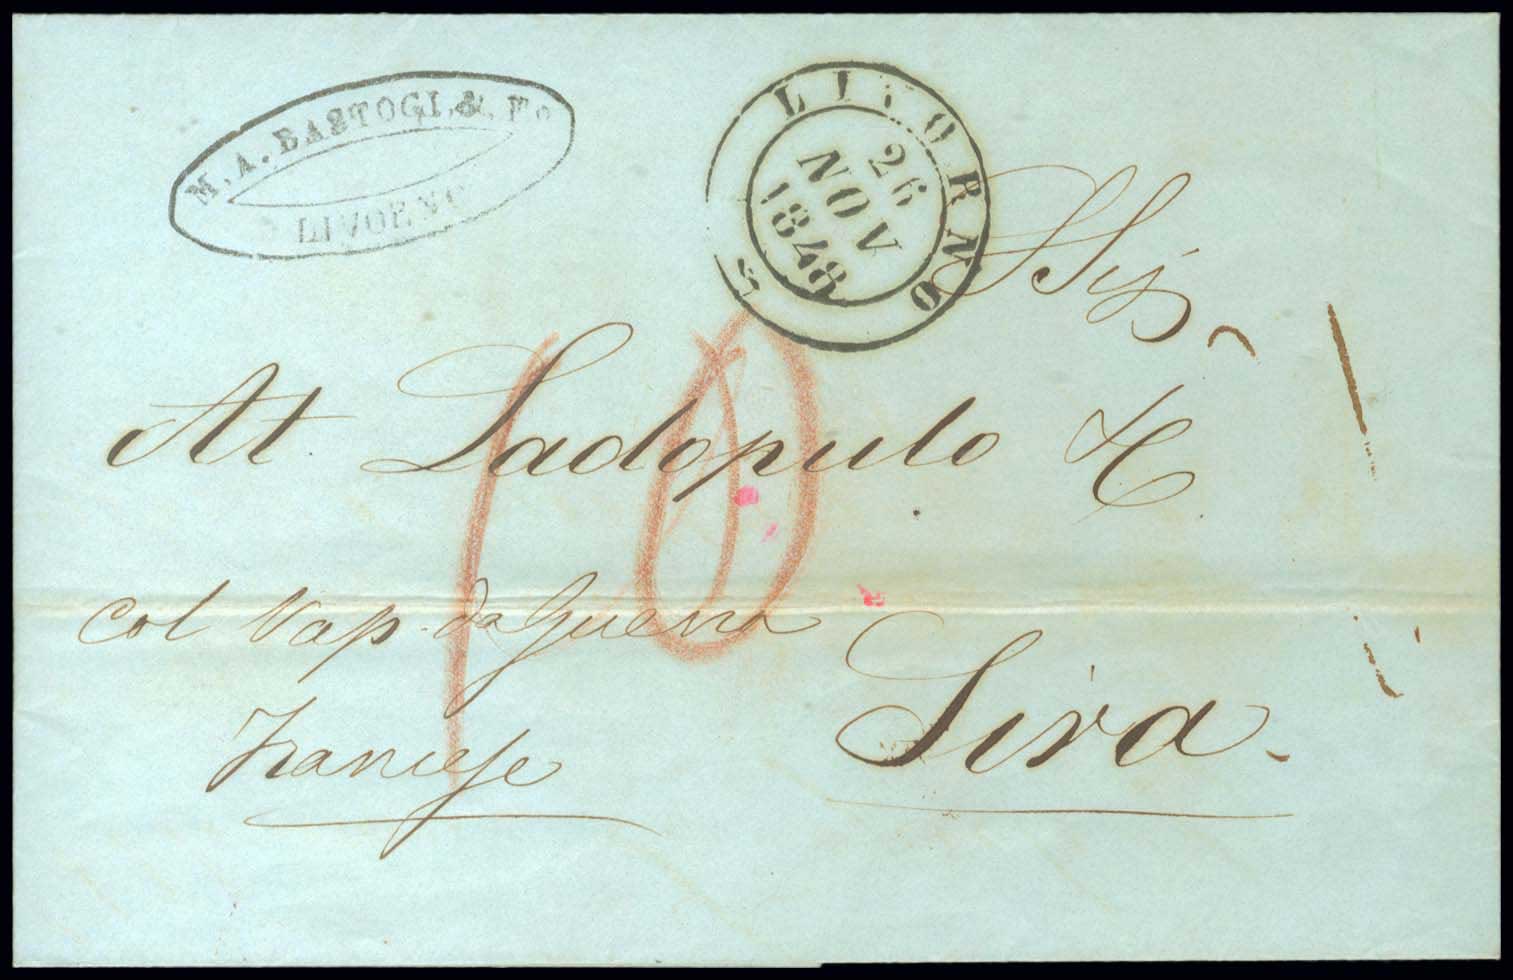 M. A. BASTOGI. & F.o
LIVORNO
LIVORNO
26
NOV
1848
Sig
At Ladopulo
10
col Vap. da guerra
Francese
Sira